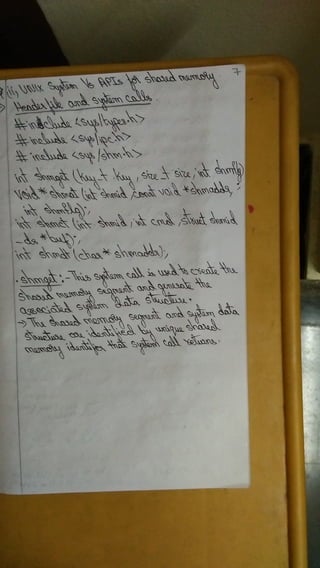 7
11, UNIX System V APIs for shared memory
Header file and system calls
# include <sys/types.h>
# include <sys/ipc.h>
# include <sys/shm.h>
int shmget (key_t key, size_t size, int shmflg)
void * shmat (int shmid, const void *shmaddr,
int shmflg);
int shmct (int shmid, int cmd, struct shmid
-ds *buf);
int shmdt (char * shmaddr);
shmget :- This system call is used to create the
shared memory segment and generate the
associated system data structure.
→ The shared memory segment and system data
structure are identified by unique shared
memory identifier that system call returns.